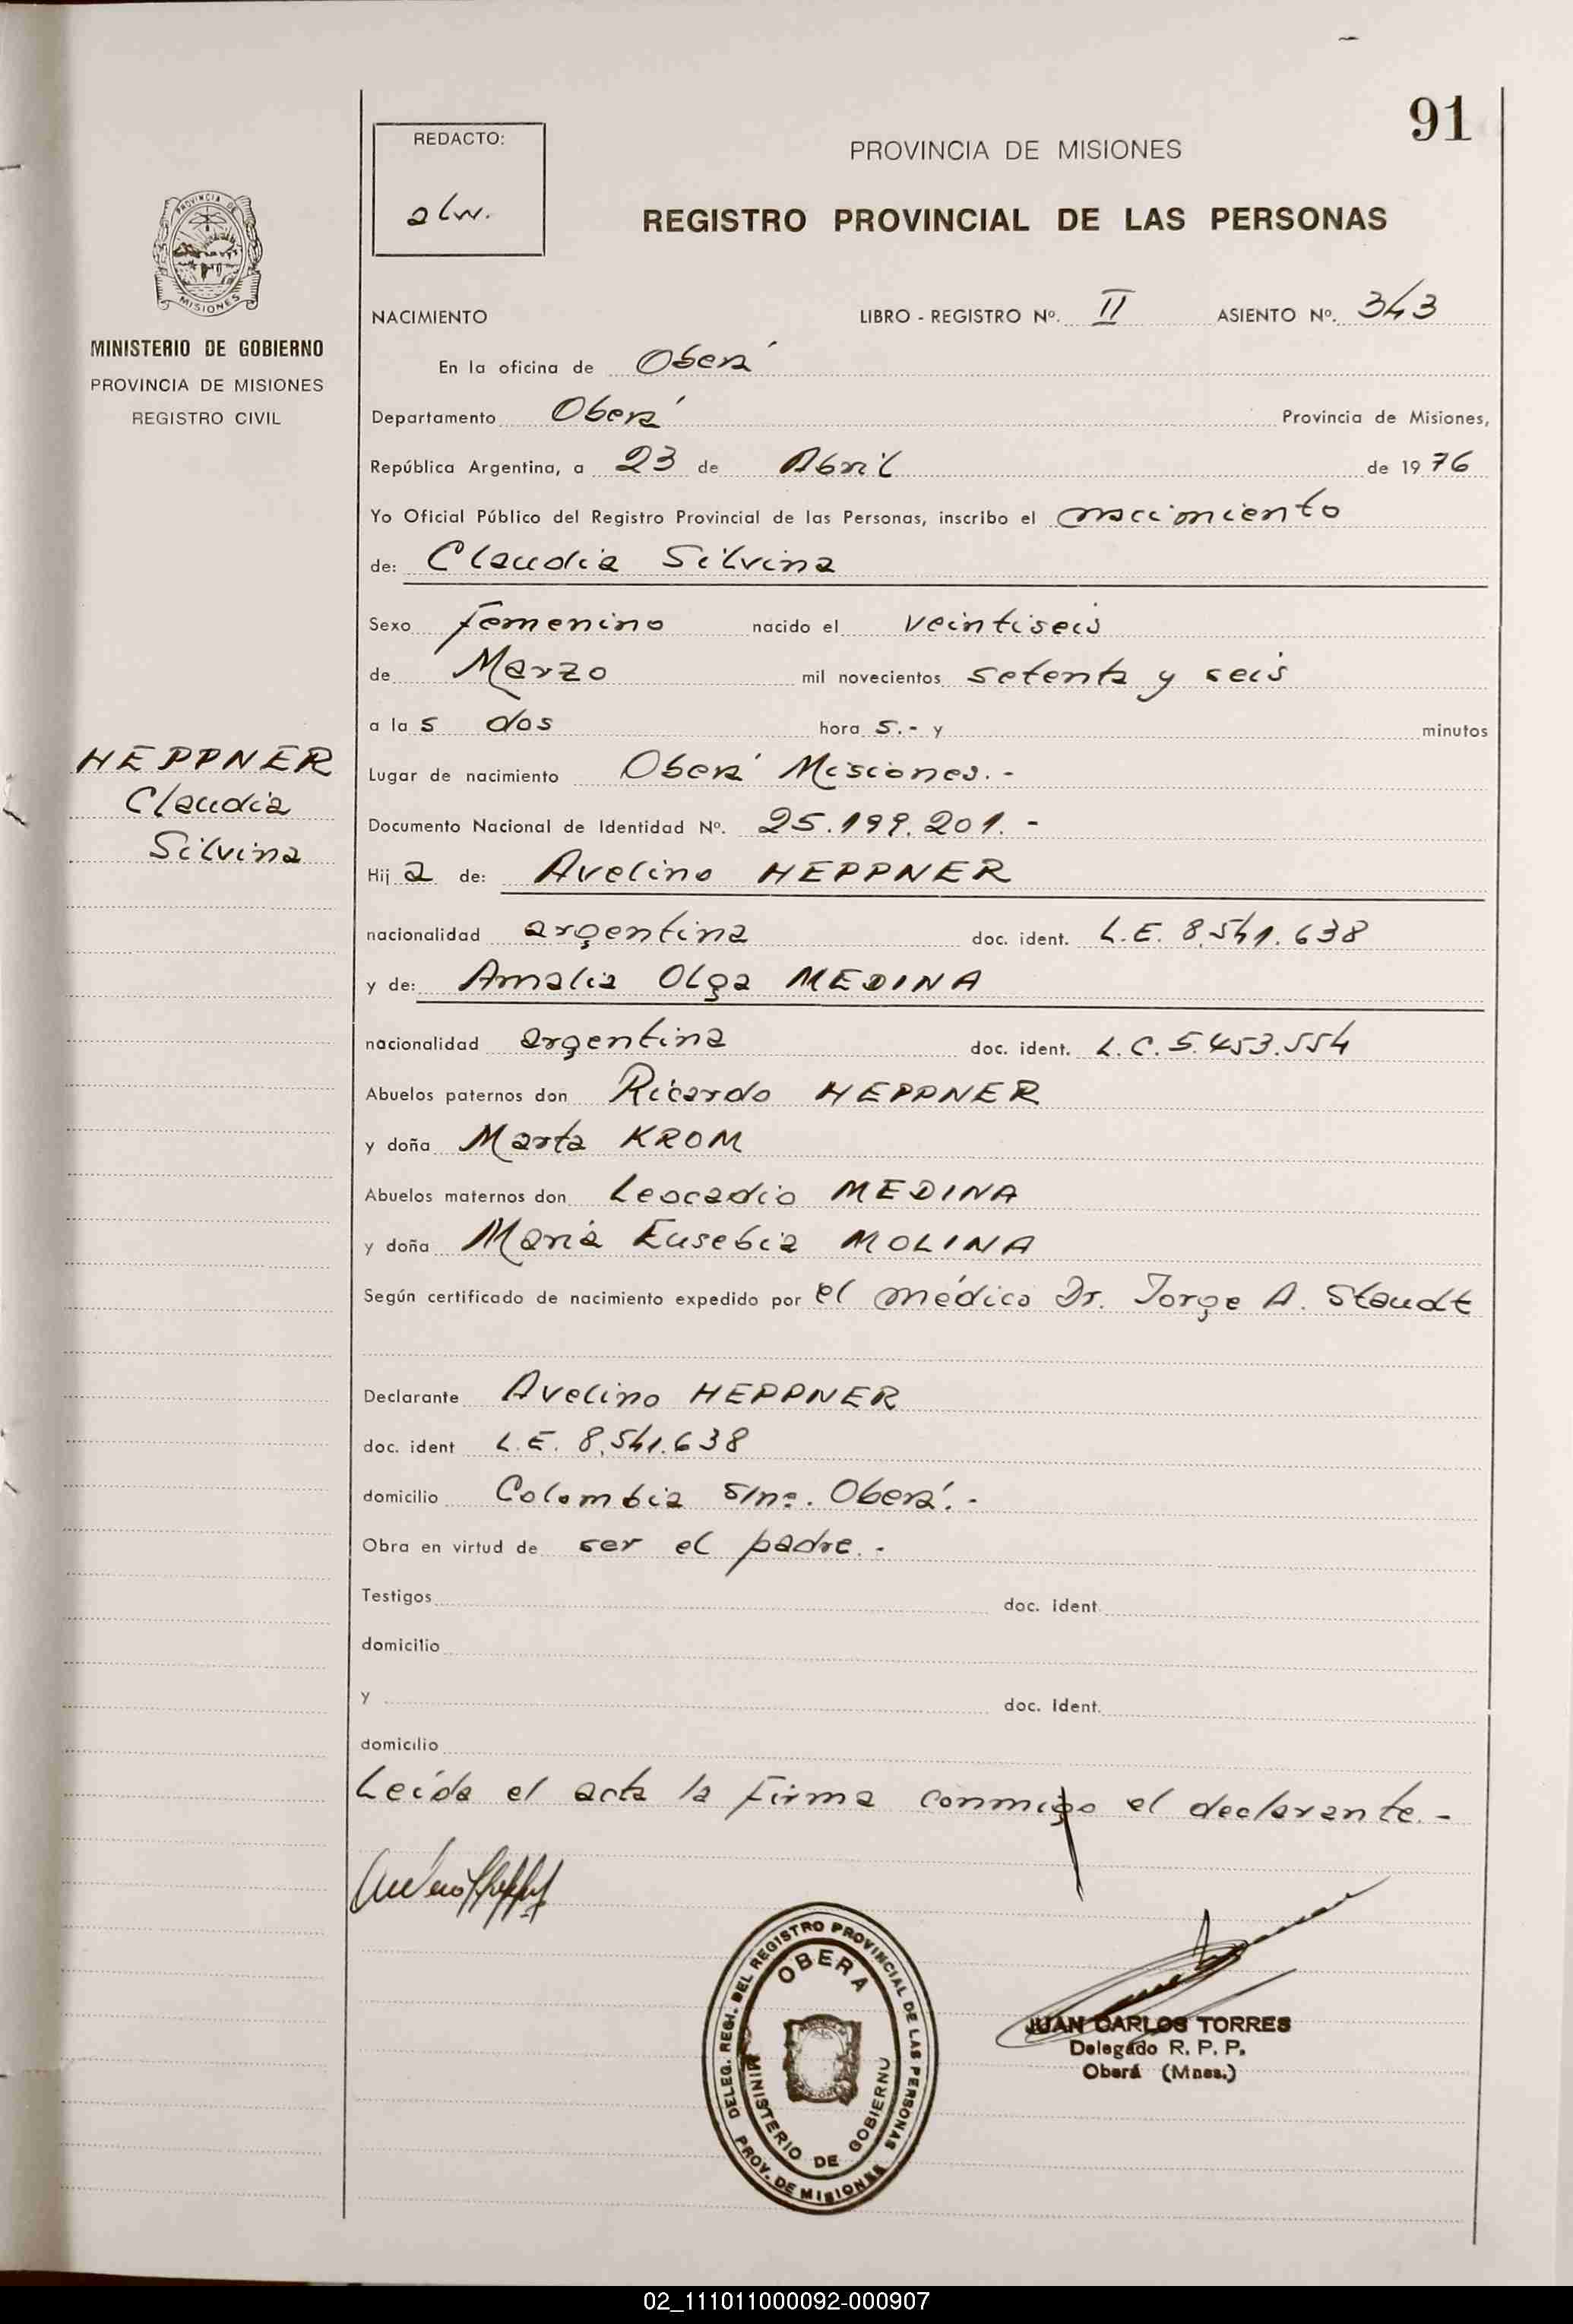 91
REDACTO:
alw.
PROVINCIA DE MISIONES
REGISTRO PROVINCIAL DE LAS PERSONAS
PROVINCIA DE
MISIONES
MINISTERIO DE GOBIERNO
PROVINCIA DE MISIONES
REGISTRO CIVIL
NACIMIENTO LIBRO - REGISTRO Nº. II ASIENTO Nº. 343
En la oficina de Oberá
Departamento Oberá Provincia de Misiones,
República Argentina, a 23 de Abril de 1976
Yo Oficial Público del Registro Provincial de las Personas, inscribo el nacimiento
de: Claudia Silvina
Sexo femenino nacido el veintiseis
de Marzo mil novecientos setenta y seis
a la s dos hora s.- y minutos
HEPPNER
Claudia
Silvina
Lugar de nacimiento Oberá Misiones.-
Documento Nacional de Identidad Nº. 25.199.201.-
Hij a de: Avelino HEPPNER
nacionalidad argentina doc. ident. L.E. 8.541.638
y de: Amalia Olga MEDINA
nacionalidad argentina doc. ident. L.C. 5.453.554
Abuelos paternos don Ricardo HEPPNER
y doña Marta KROM
Abuelos maternos don Leocadio MEDINA
y doña María Eusebia MOLINA
Según certificado de nacimiento expedido por el médico Dr. Jorge A. Staudt
Declarante Avelino HEPPNER
doc. ident L.E. 8.541.638
domicilio Colombia s/nº. Oberá.-
Obra en virtud de ser el padre.-
Testigos doc. ident.
domicilio
y doc. ident.
domicilio
Leída el acta la firma conmigo el declarante.-
DELEG. REGI. DEL REGISTRO PROVINCIAL DE LAS PERSONAS
OBERA
MINISTERIO DE GOBIERNO
PROV. DE MISIONES
JUAN CARLOS TORRES
Delegado R. P. P.
Oberá (Mnes.)
02_111011000092-000907